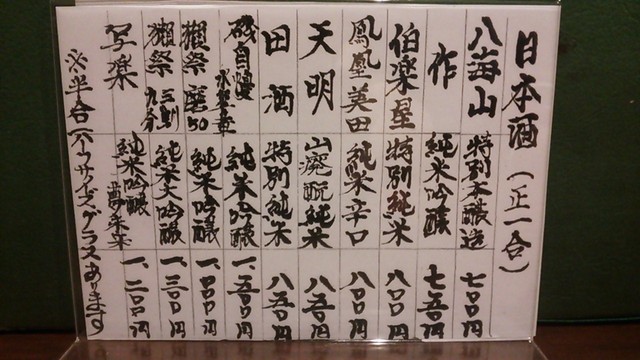 日本酒（正一合）
八海山 特別本醸造 七〇〇円
作 純米吟醸 七五〇円
伯楽星 特別純米 八〇〇円
鳳凰美田 純米辛口 八〇〇円
天明 山廃酛純米 八五〇円
田酒 特別純米 八五〇円
磯自慢 純米吟醸 一、五〇〇円
獺祭 磨50 純米吟醸 一、〇〇〇円
獺祭 三割九分 純米大吟醸 一、三〇〇円
写楽 純米吟醸 一、二〇〇円
※半合ハーフサイズグラスあります